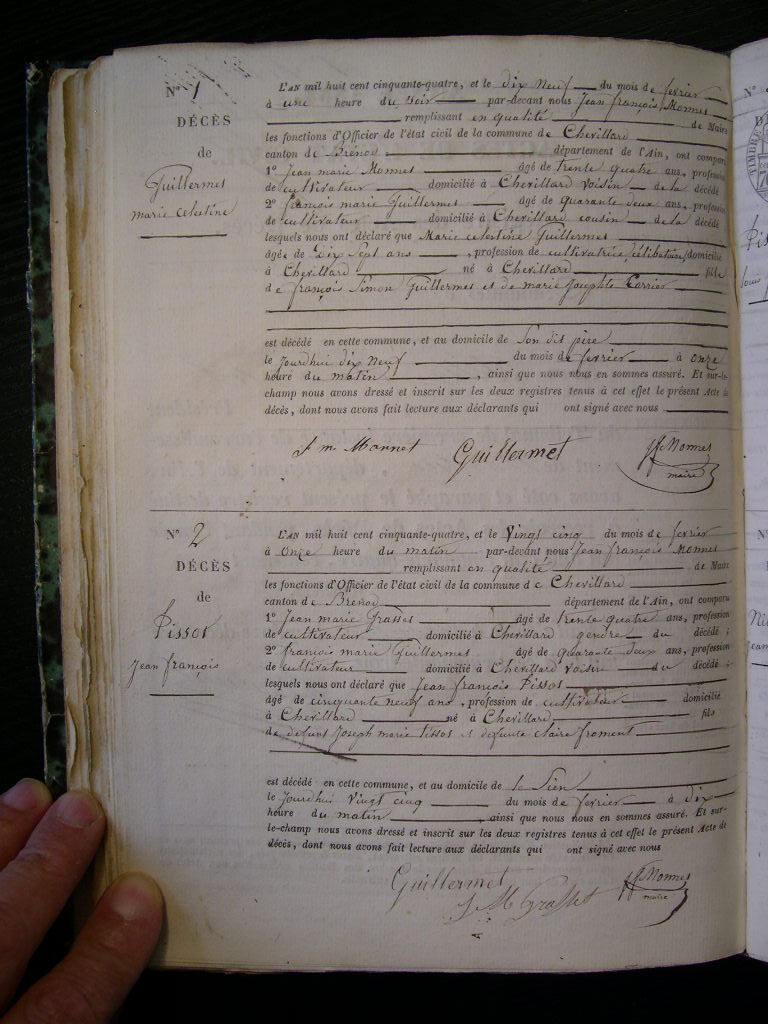 N° 1
DÉCÈS
de
Guillermet
marie Celestine
L'AN mil huit cent cinquante-quatre, et le dix Neuf du mois de fevrier
à une heure du soir par-devant nous Jean françois Monnet
remplissant en qualité de Maire
les fonctions d'Officier de l'état civil de la commune de Chevillard
canton de Brénod département de l'Ain, ont comparu
1° Jean marie Monnet âgé de trente quatre ans, profession
de cultivateur domicilié à Chevillard voisin de la décédé
2° françois marie Guillermet âgé de quarante deux ans, profession
de cultivateur domicilié à Chevillard cousin de la décédé
lesquels nous ont déclaré que Marie celestine Guillermet
âgée de Dix Sept ans, profession de cultivatrice, célibataire, domicilié
à Chevillard né à Chevillard fille
de françois Simon Guillermet et de marie Josephte Carrier
est décédé en cette commune, et au domicile de Son dit père
le Jourdhui dix Neuf du mois de fevrier à onze
heure du matin, ainsi que nous nous en sommes assuré. Et sur-le-
champ nous avons dressé et inscrit sur les deux registres tenus à cet effet le présent Acte de
décès, dont nous avons fait lecture aux déclarants qui ont signé avec nous
J m Monnet Guillermet JF Monnet
maire
N° 2
DÉCÈS
de
Pissot
Jean françois
L'AN mil huit cent cinquante-quatre, et le Vingt cinq du mois de fevrier
à Onze heure du matin par-devant nous Jean françois Monnet
remplissant en qualité de Maire
les fonctions d'Officier de l'état civil de la commune de Chevillard
canton de Brénod département de l'Ain, ont comparu
1° Jean marie Grasset âgé de trente quatre ans, profession
de cultivateur domicilié à Chevillard gendre du décédé ;
2° françois marie Guillermet âgé de quarante deux ans, profession
de cultivateur domicilié à Chevillard voisin du décédé ;
lesquels nous ont déclaré que Jean françois Pissot
âgé de cinquante neuf ans, profession de cultivateur domicilié
à Chevillard né à Chevillard fils
de defunt Joseph marie Pissot et defunte claire froment
est décédé en cette commune, et au domicile de le Sien
le Jourdhui Vingt cinq du mois de fevrier à dix
heure du matin, ainsi que nous nous en sommes assuré. Et sur-
le-champ nous avons dressé et inscrit sur les deux registres tenus à cet effet le présent Acte de
décès, dont nous avons fait lecture aux déclarants qui ont signé avec nous
Guillermet
J M Grasset JF Monnet
maire